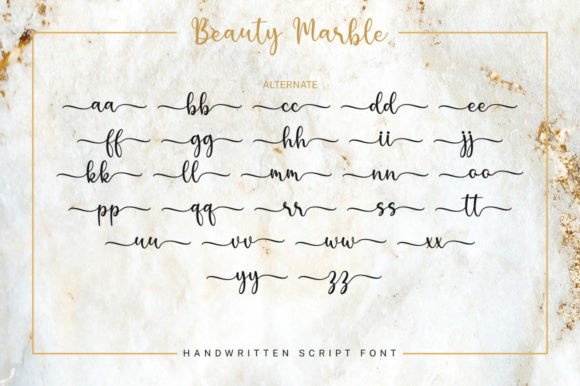 Beauty Marble
ALTERNATE
aa bb cc dd ee
ff gg hh ii jj
kk ll mm nn oo
pp qq rr ss tt
uu vv ww xx
yy zz
HANDWRITTEN SCRIPT FONT